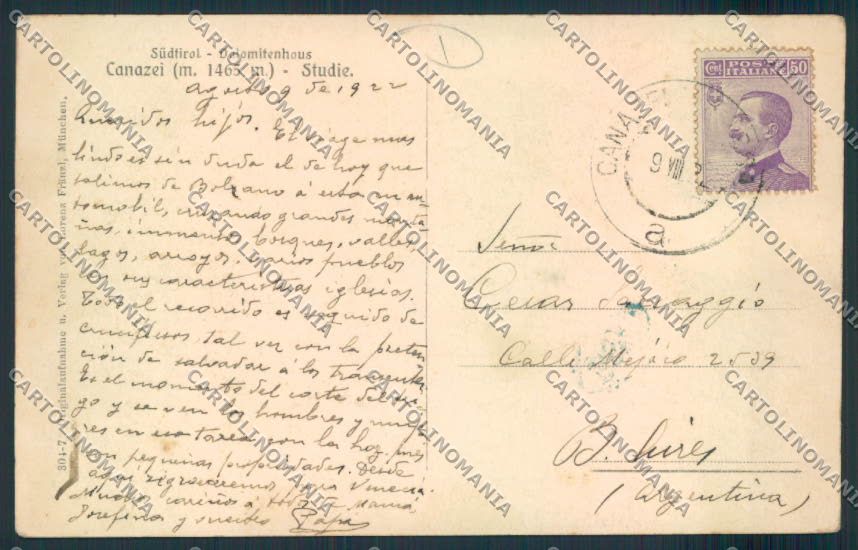 Südtirol - Dolomitenhaus
Canazei (m. 1465 m.) - Studie.
Agosto 9 de 1922
Queridos hijos. El viage mas
lindo es sin duda el de hoy que
salimos de Bolzano á esta en au-
tomobil, cruzando grandes monta
ñas, inmensos bosques, valles,
lagos, arroyos, varios pueblos
con sus caracteristicas iglesias.
Todo el recorrido es seguido de
crucifixos, tal vez con la preten
ción de salvador á los transeunte.
Es el momento del corte del tri
go y se ven los hombres y muje
res en esa tarea con la hoz, pues
son pequeñas propiedades. Desde
aqui regresaremos para Venecia
Muchos cariños á todos de Mamá,
Josefina y Papá
304-7 Originalaufnahme u. Verlag von Lorenz Fränzl, München.
1
CENT POSTE 50
ITALIANE
CANAZEI
9 VIII 22
a
Señor
Cesar
Calle Mejico 2539
B. Aires
(Argentina)
CARTOLINOMANIA